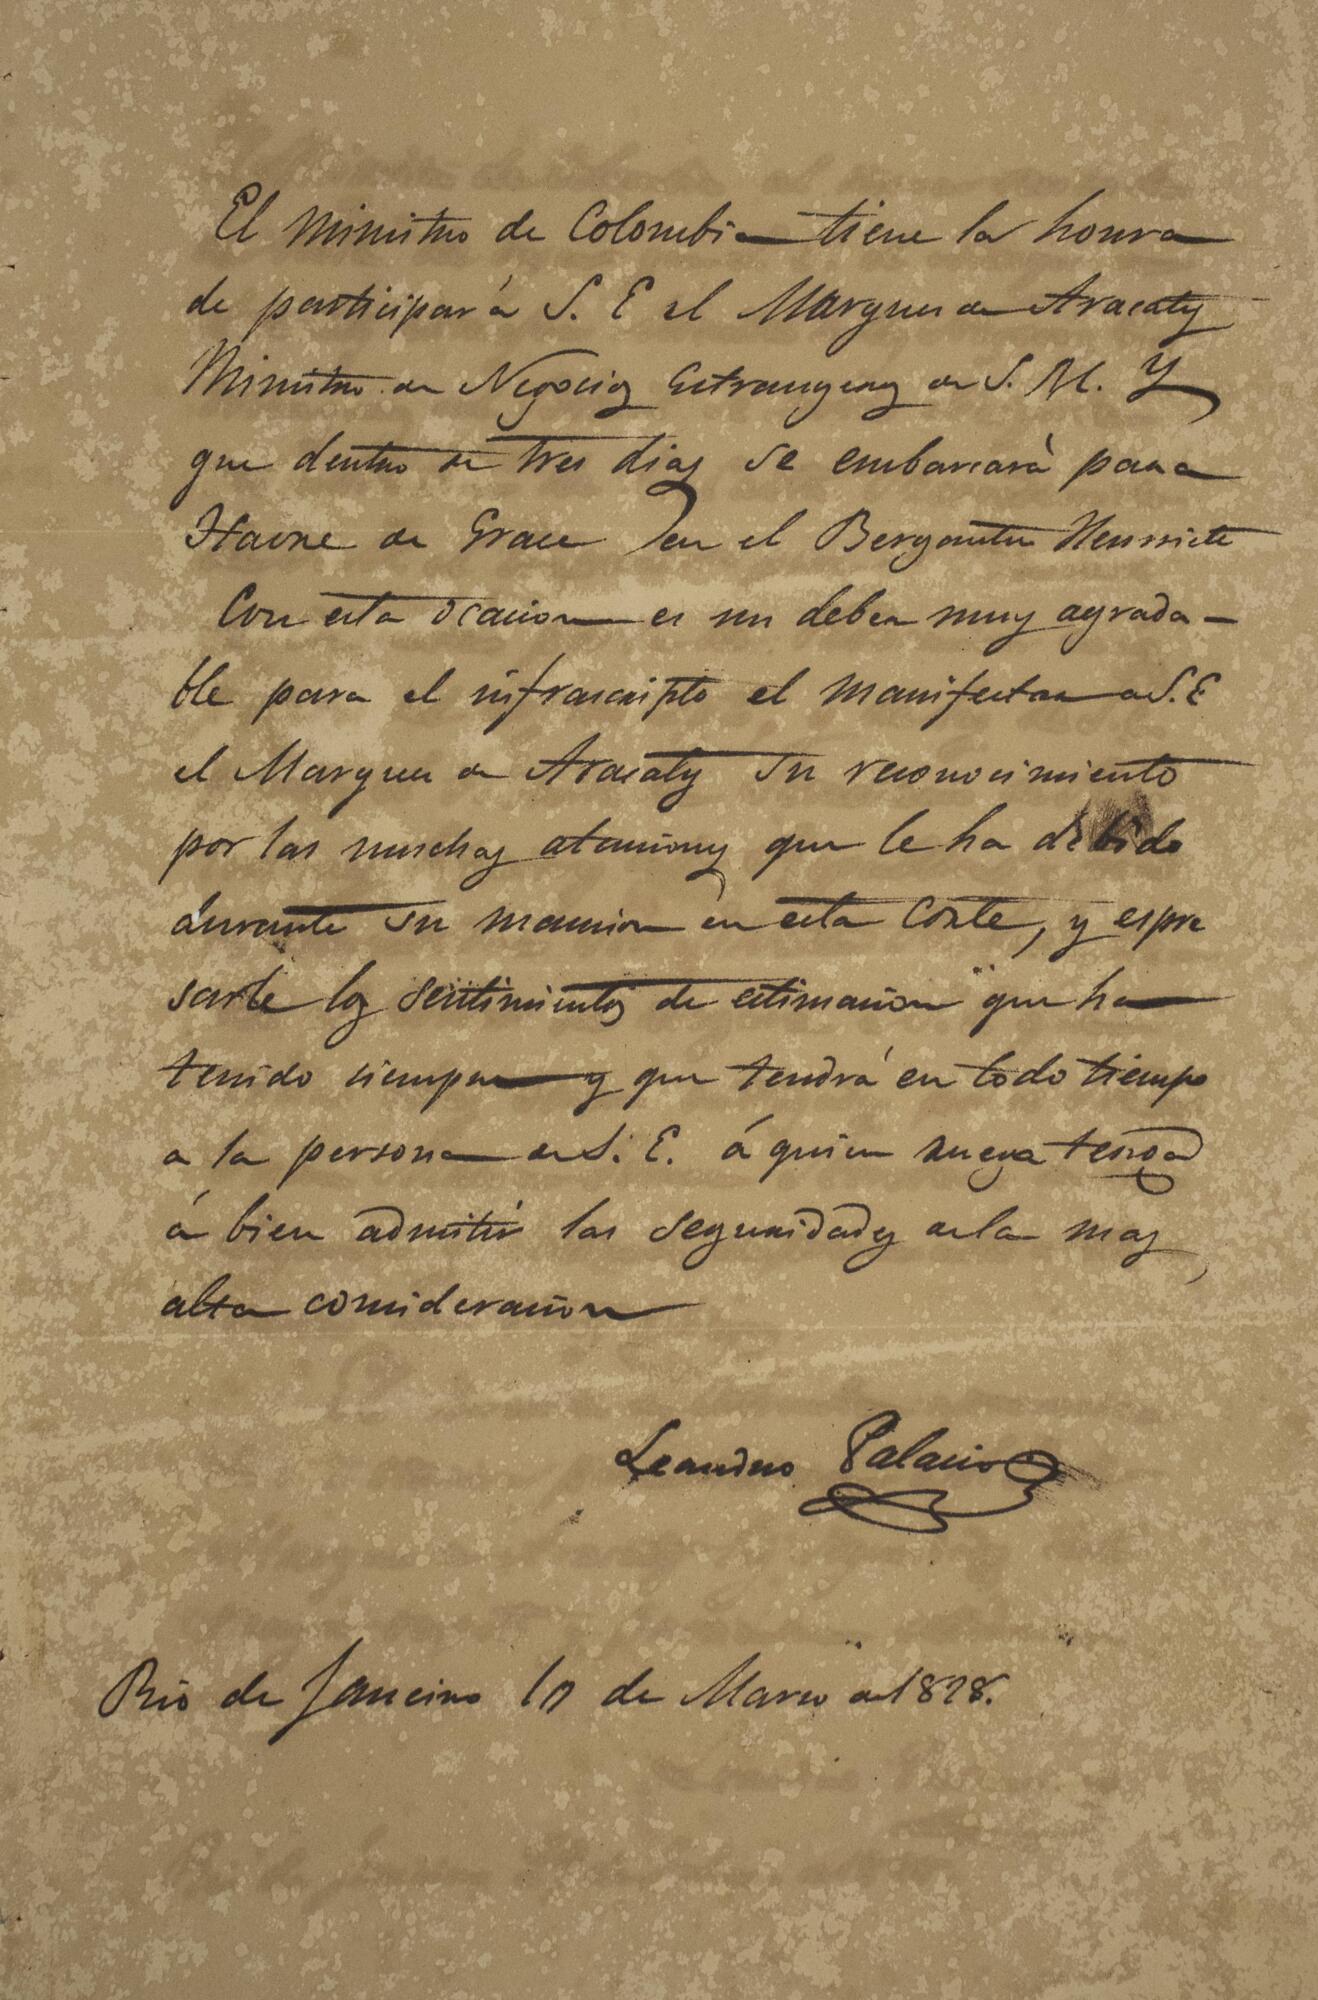 El Ministro de Colombia tiene la honra
de participar á S. E el Marques de Aracaty
Ministro de Negocios Estrangeros de S. M. Y
que dentro de tres dias se embarcará para
Havre de Grace en el Bergantin Henriete
Con esta ocacion es un deber muy agrada-
ble para el infrascripto el manifestar a S. E
el Marques de Aracaty su reconocimiento
por las muchas atenciones que le ha debido
durante su mancion en esta Corte, y espre
sarle los sentimientos de estimacion que ha
tenido siempre y que tendrá en todo tiempo
a la persona de S. E. á quien ruega tenga
á bien admitir las seguridades de la mas
alta consideracion
Leandro Palacios
Rio de Janeiro de Marzo de 1828.